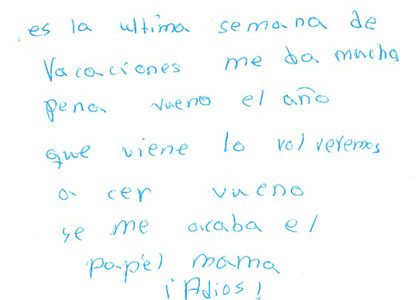 es la ultima semana de
Vacaciones me da mucha
pena vueno el año
que viene lo volveremos
a cer vueno
se me acaba el
papel mama
¡Adios!